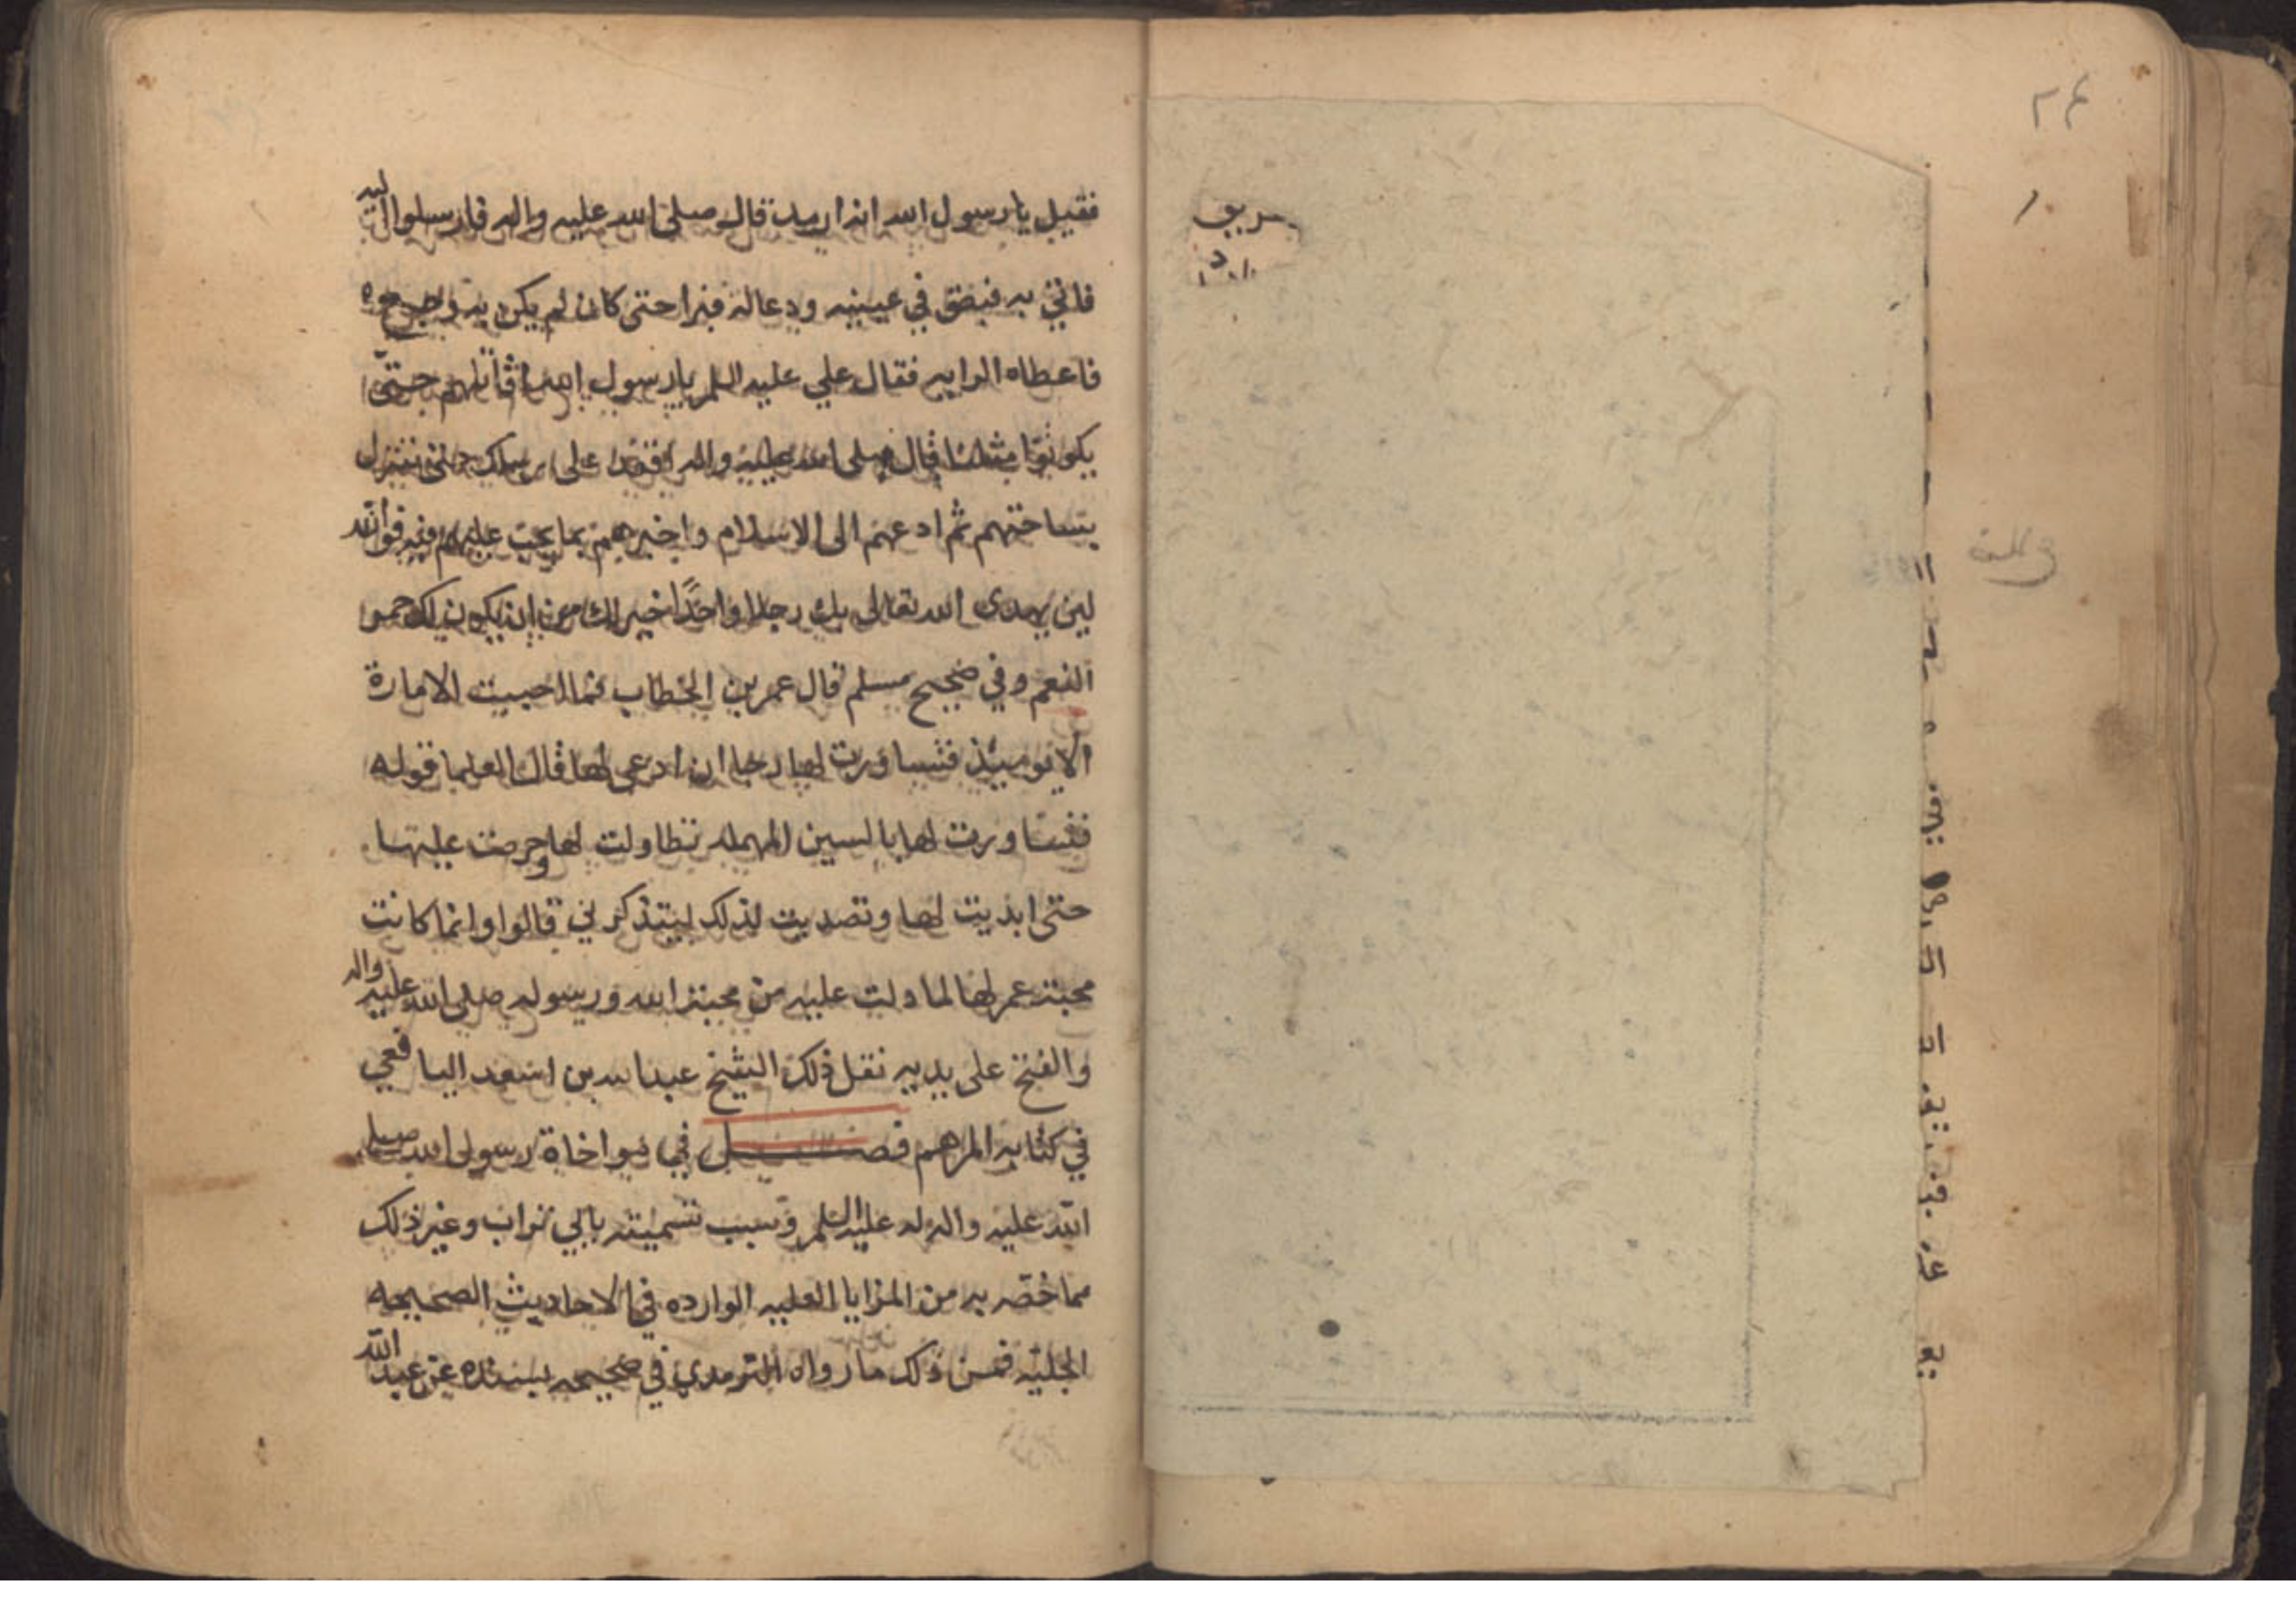 فقيل يا رسول الله انه ارمد قال صلى الله عليه واله فارسلوا اليه
فاتي به فبصق في عينيه ودعا له فبرا حتى كان لم يكن به وجع
فاعطاه الرايه فقال علي عليه السلم يا رسول الله اقاتلهم حتى
يكونوا مثلنا قال صلى الله عليه واله انفذ على رسلك حتى تنزل
بساحتهم ثم ادعهم الى الاسلام واخبرهم بما يجب عليهم فيه فوالله
لين يهدى الله تعالى بك رجلا واحدًا خير لك من ان يكون لك حمر
النعم وفي صحيح مسلم قال عمر بن الخطاب فما احببت الامارة
الا يوميذ فتساورت لها رجا ان ادعى لها قال العلما قوله
فتساورت لها بالسين المهمله تطاولت لها وحرصت عليها
حتى ابديت لها وتصديت لذلك ليتذكرني قالوا وانما كانت
محبة عمر لها لما دلت عليه من محبة الله ورسوله صلى الله عليه واله
والفتح على يديه نقل ذلك الشيخ عبد الله بن اسعد اليافعي
في كتابه المرهم فصل في مواخاة رسول الله صلى
الله عليه واله له عليه السلم وسبب تسميته بابي تراب وغير ذلك
مما خُصّ به من المزايا العليه الوارده في الاحاديث الصحيحه
الجليّه فمن ذلك ما رواه الترمدي في صحيحه بسنده عن عبد الله